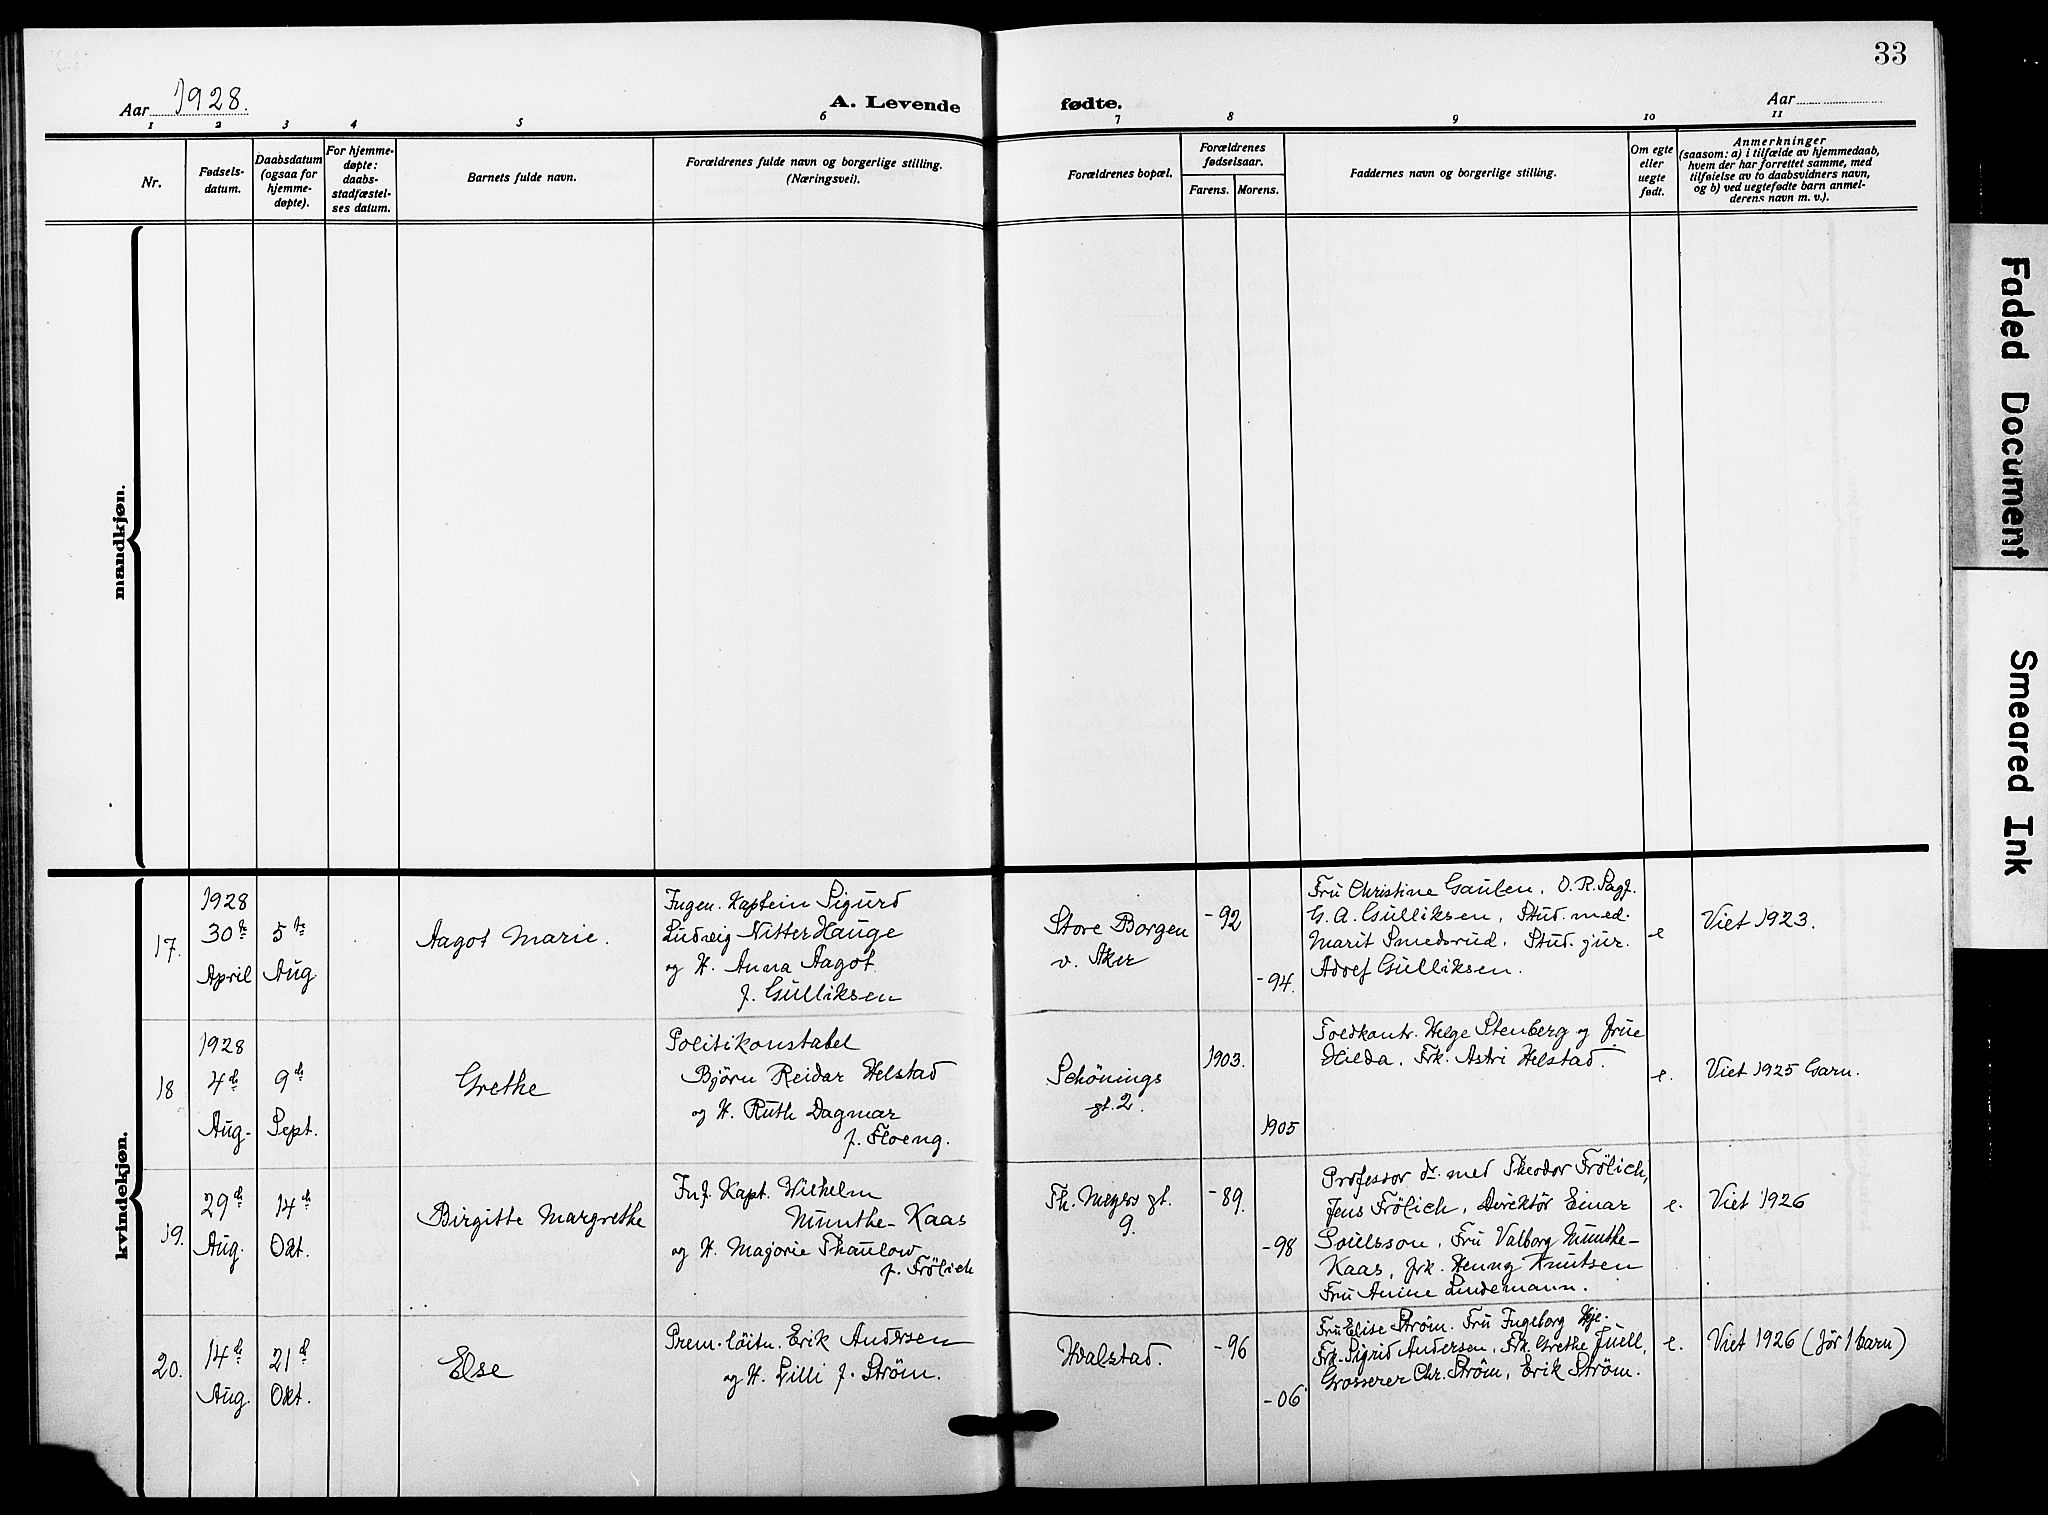 33
Aar 1928.
A. Levende
fødte.
Aar
1 2 3 4 5 6 7 8 9 10 11
Nr.
Fødsels-
datum.
Daabsdatum
(ogsaa for
hjemme-
døpte).
For hjemme-
døpte:
daabs-
stadfæstel-
ses datum.
Barnets fulde navn.
Forældrenes fulde navn og borgerlige stilling.
(Næringsvei).
Forældrenes bopæl.
Forældrenes
fødselsaar.
Farens. Morens.
Faddernes navn og borgerlige stilling.
Om egte
eller
uegte
født.
Anmerkninger
(saasom: a) i tilfælde av hjemmedaab,
hvem der har forrettet samme, med
tilføielse av to daabsvidners navn,
og b) ved uegtefødte barn anmel-
derens navn m. v.).
mandkjøn.
kvindekjøn.
17.
1928
30te
April
5te
Aug
Aagot Marie.
Ingen. Kaptein Sigurd
Ludvig Nitter Hauge
og H. Anna Aagot
f. Gulliksen
Store Borgen
v. Aker
-92
-94.
Fru Christine Gaulen. O.R.Sagf.
G. A. Gulliksen, Stud. med.
Marit Smedsrud, Stud. jur.
Adolf Gulliksen.
e
Viet 1923.
18
1928
4de
Aug.
9de
Sept.
Grethe
Politikonstabel
Bjørn Reidar Helstad
og H. Ruth Dagmar
f. Floeng.
Schönings
gt. 2.
1903.
1905
Toldkontr. Helge Stenberg og frue
Hilda, Frk. Astri Helstad.
e.
Viet 1925 Garn.
19.
29de
Aug.
14de
Okt.
Birgitte Margrethe
Inf. Kapt. Wilhelm
Munthe-Kaas
og H. Majorie Thaulow
f. Frölich
Th. Meyers gt.
9.
-89.
-98
Professor dr. med Theodor Frölich,
Jens Frölich, Direktør Einar
Poulsson, Fru Valborg Munthe-
Kaas, frk. Henny Knutsen
Fru Anine Lindemann.
e.
Viet 1926
20.
14de
Aug.
21de
Okt.
Else
Prem.-löitn. Erik Andersen
og H. Lilli f. Strøm.
Hvalstad.
-96
-06
Fru Elise Strøm. Fru Ingeborg
Frk. Sigrid Andersen, Frk. Grethe Juell,
Grosserer Chr. Strøm, Erik Strøm.
e.
Viet 1926 (før 1 barn)
Faded Document
Smeared Ink